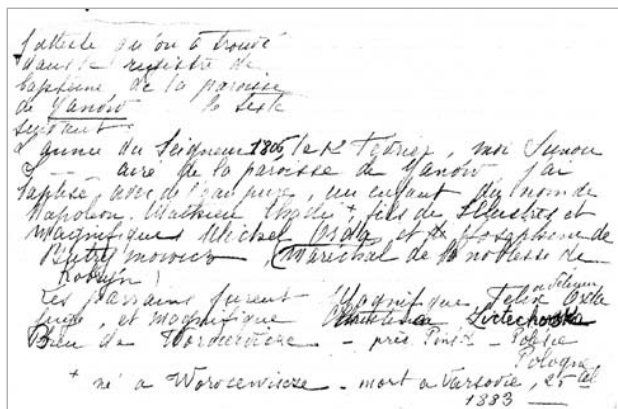 J'atteste qu'on a trouvé
dans le registre de
baptême de la paroisse
de Yanów le texte
suivant
L'année du Seigneur 1806, le 12 Février, moi
curé de la paroisse de Yanów j'ai
baptisé avec de l'eau pure, un enfant du nom de
Napoléon, Mathieu +, fils de Illustres et
Magnifiques Michel Orda et de Josephine de
Butrymowicz, (Maréchal de la noblesse de
Kobryn)
Les parrains furent Magnifique Felix Orda
juge, et magnifique
Bien de Worocewicze - près Pinsk - Polésie
Pologne
+ né à Worocewicze - mort à Varsovie, 25
1883